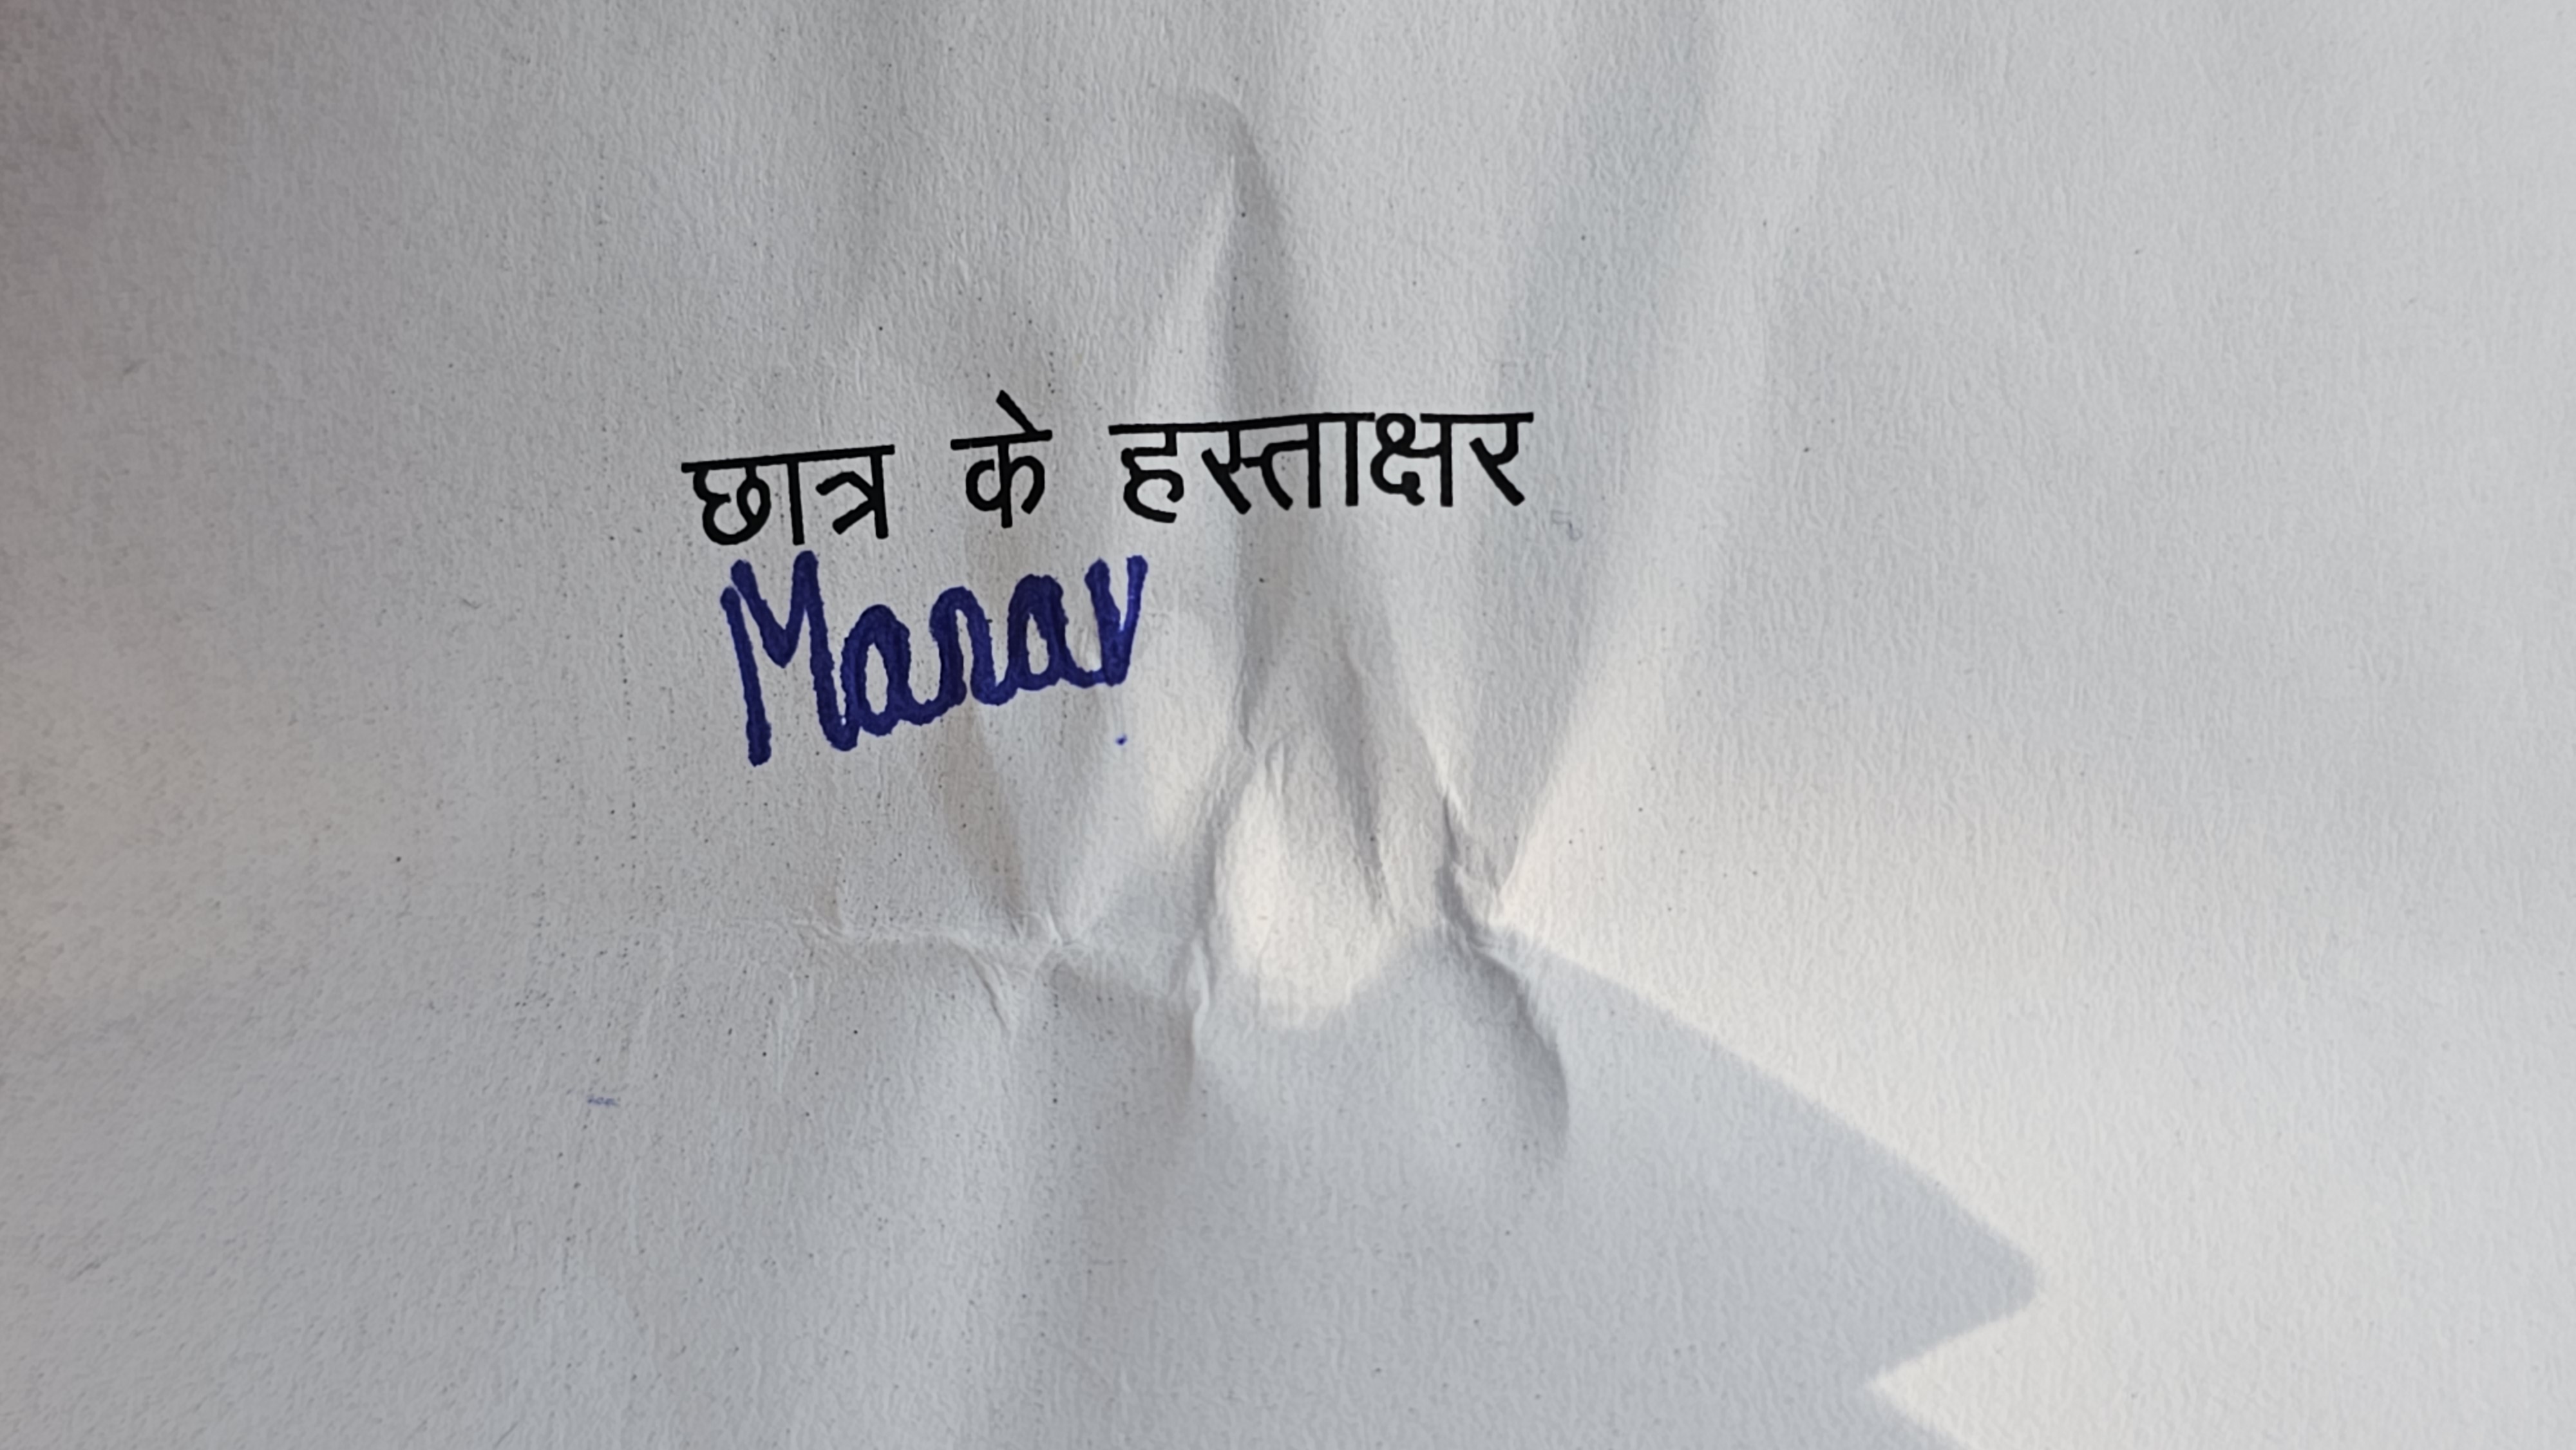 छात्र के हस्ताक्षर
Manav